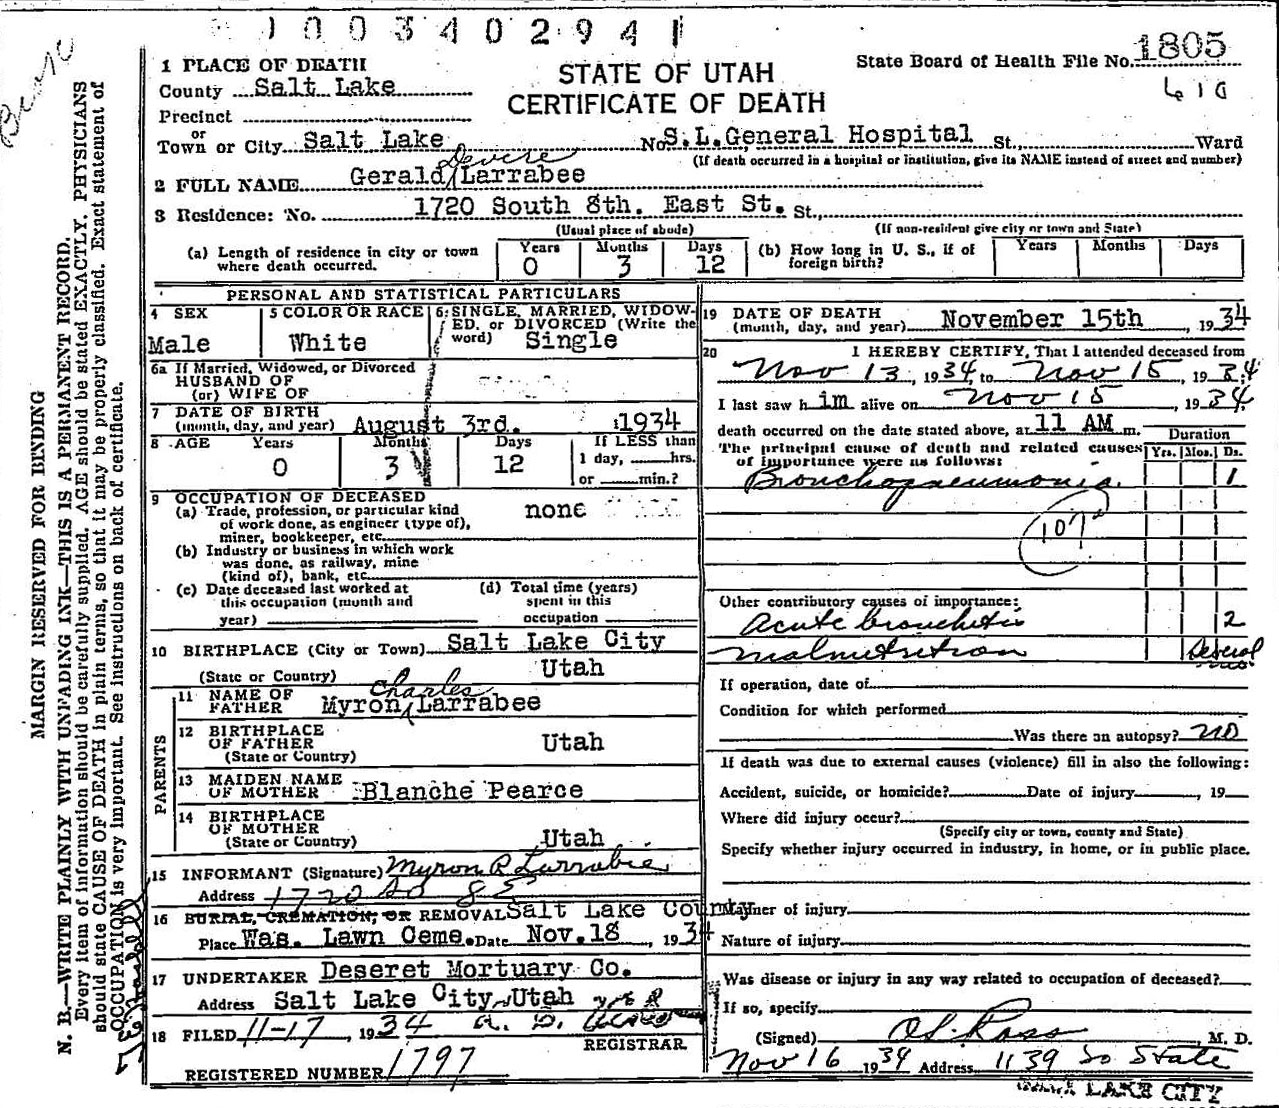 1003402941
1805
State Board of Health File No.
STATE OF UTAH
CERTIFICATE OF DEATH
1 PLACE OF DEATH
County Salt Lake
Precinct
or
Town or City Salt Lake No. S.L.General Hospital St., Ward
(If death occurred in a hospital or institution, give its NAME instead of street and number)
2 FULL NAME Gerald Devere Larrabee
3 Residence: No. 1720 South 8th. East St. St.,
(Usual place of abode) (If non-resident give city or town and State)
(a) Length of residence in city or town where death occurred. Years 0 Months 3 Days 12
(b) How long in U. S., if of foreign birth? Years Months Days
PERSONAL AND STATISTICAL PARTICULARS
4 SEX Male
5 COLOR OR RACE White
6 SINGLE, MARRIED, WIDOWED, or DIVORCED (Write the word) Single
6a If Married, Widowed, or Divorced
HUSBAND OF
(or) WIFE OF
7 DATE OF BIRTH
(month, day, and year) August 3rd. 1934
8 AGE Years 0 Months 3 Days 12 If LESS than
1 day, hrs.
or min.?
9 OCCUPATION OF DECEASED
(a) Trade, profession, or particular kind none
of work done, as engineer (type of),
miner, bookkeeper, etc.
(b) Industry or business in which work
was done, as railway, mine
(kind of), bank, etc.
(c) Date deceased last worked at
this occupation (month and
year)
(d) Total time (years)
spent in this
occupation
10 BIRTHPLACE (City or Town) Salt Lake City
(State or Country) Utah
PARENTS
11 NAME OF FATHER Myron Charles Larrabee
12 BIRTHPLACE OF FATHER
(State or Country) Utah
13 MAIDEN NAME OF MOTHER Blanche Pearce
14 BIRTHPLACE OF MOTHER
(State or Country) Utah
15 INFORMANT (Signature) Myron R Larrabie
Address 1720 So 8 E
16 BURIAL, CREMATION, OR REMOVAL Salt Lake County
Place Was. Lawn Ceme. Date Nov.18, 1934
17 UNDERTAKER Deseret Mortuary Co.
Address Salt Lake City, Utah
18 FILED 11-17, 1934
REGISTRAR
REGISTERED NUMBER 1797
19 DATE OF DEATH
(month, day, and year) November 15th, 1934
20 I HEREBY CERTIFY, That I attended deceased from
Nov 13, 1934, to Nov 15, 1934
I last saw him alive on Nov 15, 1934
death occurred on the date stated above, at 11 AM m.
The principal cause of death and related causes
of importance were as follows:
Duration
Yrs. Mos. Ds.
Bronchopneumonia. 1
107
Other contributory causes of importance:
Acute bronchitis 2
Malnutrition Several mo
If operation, date of
Condition for which performed
Was there an autopsy? no
If death was due to external causes (violence) fill in also the following:
Accident, suicide, or homicide? Date of injury , 19
Where did injury occur?
(Specify city or town, county and State)
Specify whether injury occurred in industry, in home, or in public place.
Manner of injury
Nature of injury
Was disease or injury in any way related to occupation of deceased?
If so, specify
(Signed) O.S. Ross, M. D.
Nov 16 1934 Address 1139 So State
SALT LAKE CITY
MARGIN RESERVED FOR BINDING
N. B.—WRITE PLAINLY WITH UNFADING INK—THIS IS A PERMANENT RECORD.
Every item of information should be carefully supplied. AGE should be stated EXACTLY. PHYSICIANS
should state CAUSE OF DEATH in plain terms, so that it may be properly classified. Exact statement of
OCCUPATION is very important. See instructions on back of certificate.